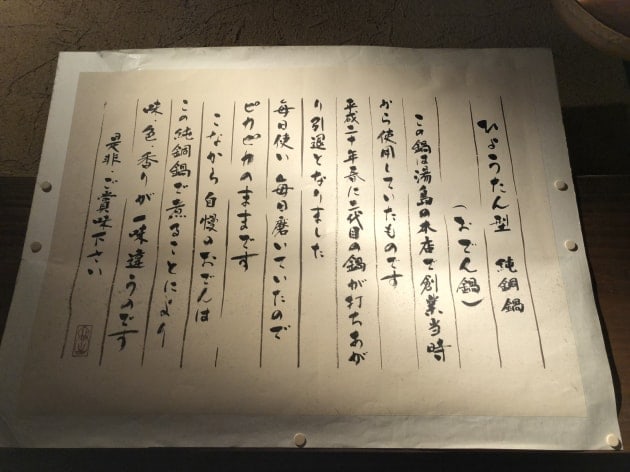 ひょうたん型 純銅鍋
(おでん鍋)
この鍋は湯島の本店で創業当時
から使用していたものです
平成二十年春に二代目の鍋が打ちあが
り引退となりました
毎日使い 毎日磨いていたので
ピカピカのままです
こなから自慢のおでんは
この純銅鍋で煮ることにより
味・色・香りが一味違うのです
是非・ご賞味下さい